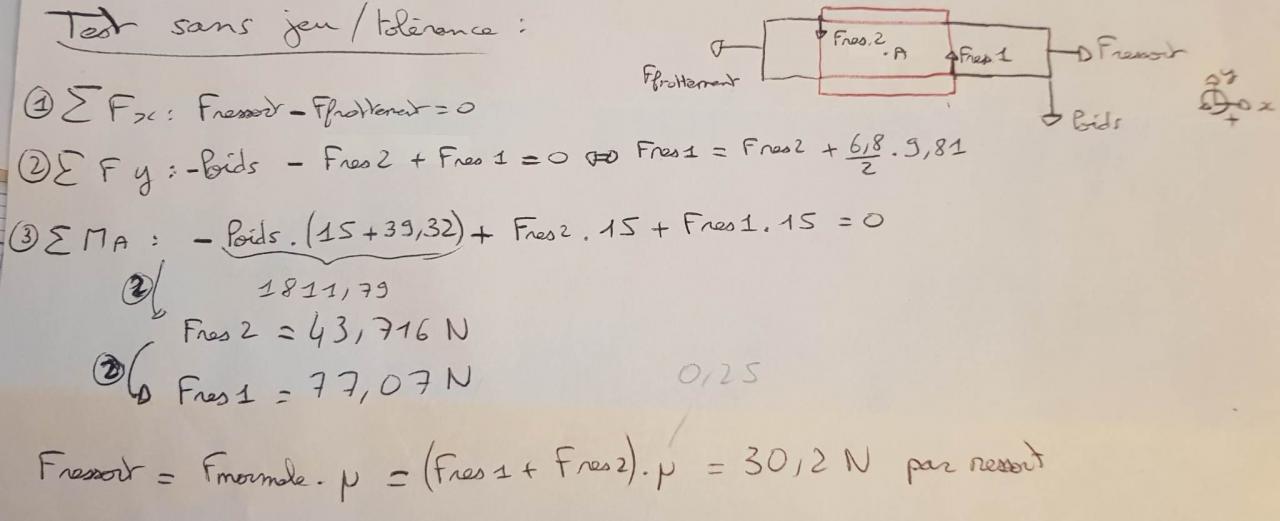 Test sans jeu / tolérance :
Fres.2
.A
Fres 1
Fressort
Ffrottement
Poids
y
x
+
① ∑ Fx : Fressort - Ffrottement = 0
② ∑ F y : -Poids - Fres 2 + Fres 1 = 0 ⇔ Fres 1 = Fres 2 + 6,8/2 . 9,81
③ ∑ MA : - Poids . (15 + 39,32) + Fres 2 . 15 + Fres 1 . 15 = 0
② 1811,79
Fres 2 = 43,716 N
② Fres 1 = 77,07 N
0,25
Fressort = Fnormale . μ = (Fres 1 + Fres 2) . μ = 30,2 N par ressort